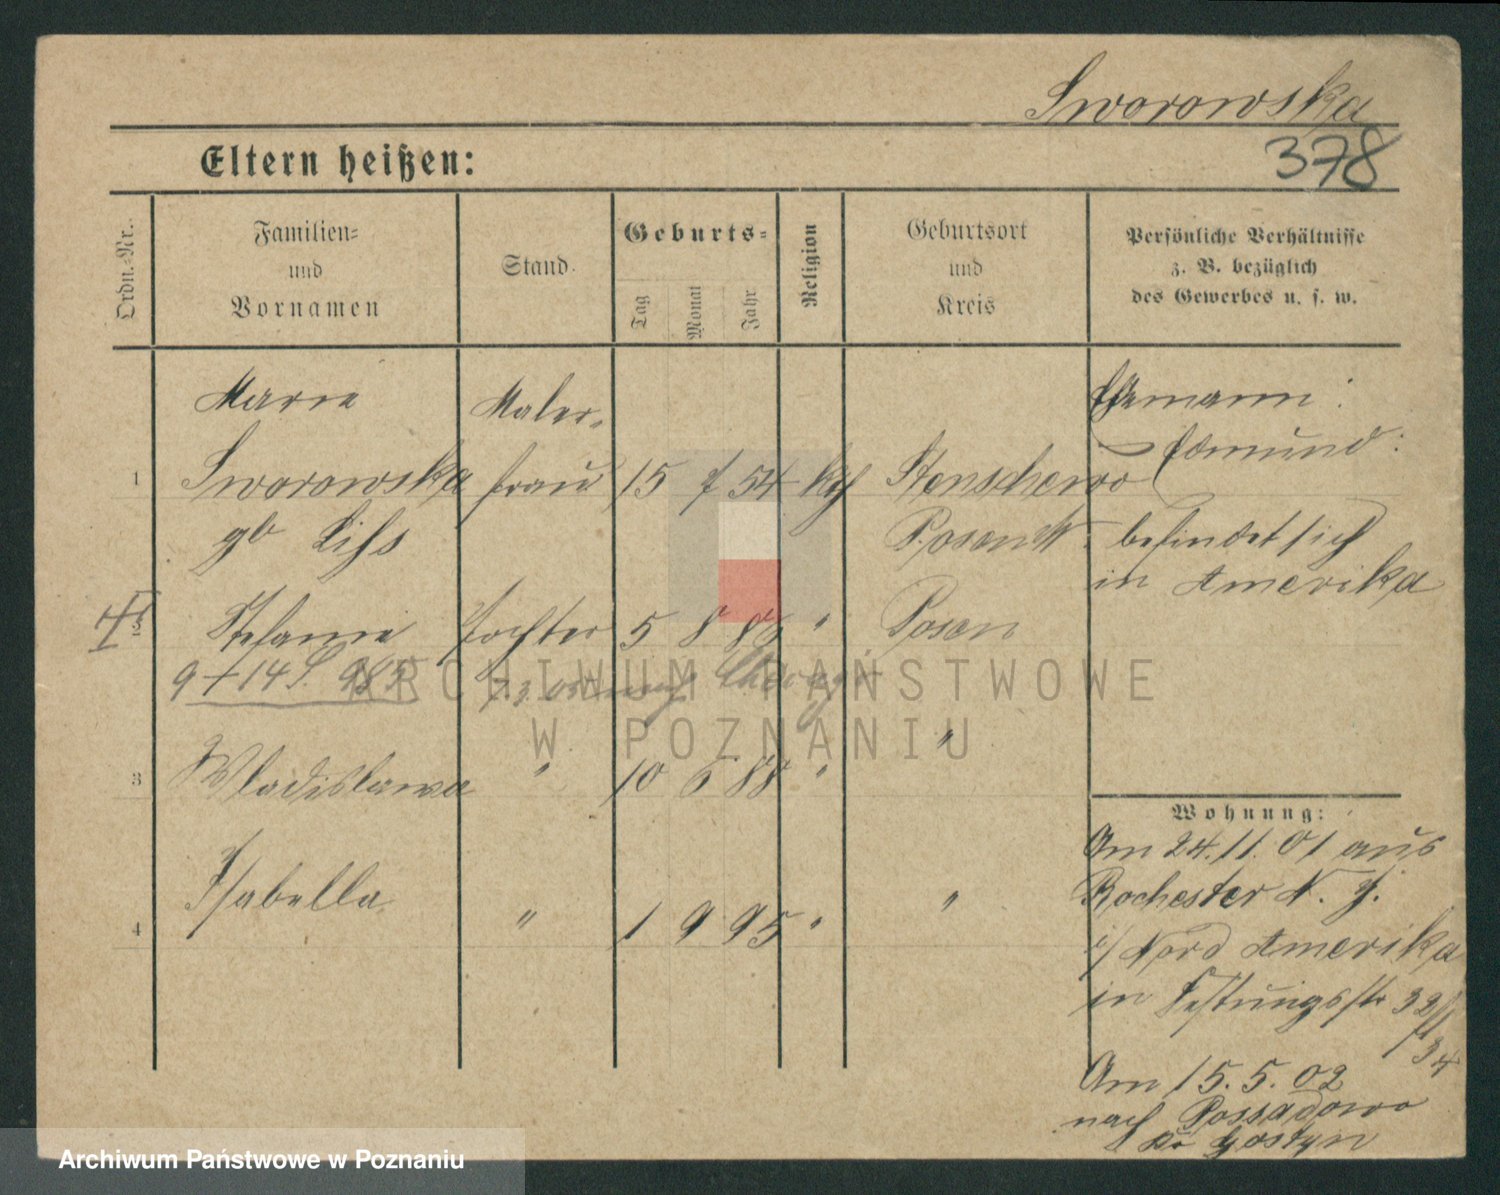 Sworowska
Eltern heißen:
378
Ordn.-Nr.
Familien-
und
Vornamen
Stand.
Geburts-
Tag
Monat
Jahr
Religion
Geburtsort
und
Kreis
Persönliche Verhältnisse
z. B. bezüglich
des Gewerbes u. s. w.
Marie Maler-
1 Sworowska frau 15 7 54 kth Stenschewo
gb Posen W.
Ehemann:
Edmund:
befindet sich
in Amerika
2 Stefanie Tochter 5 8 86 " Posen
9 + 14
3 Wladislawa " 10 6 88 " "
4 Isabella " 1 9 95 " "
Wohnung:
Am 24.11.01 aus
Rochester N. Y.
i/ Nord Amerika
in Festungsstr 32/
34
Am 15.5.02
nach Possadowo
Kr Gostyn
ARCHIWUM PAŃSTWOWE
W POZNANIU
Archiwum Państwowe w Poznaniu